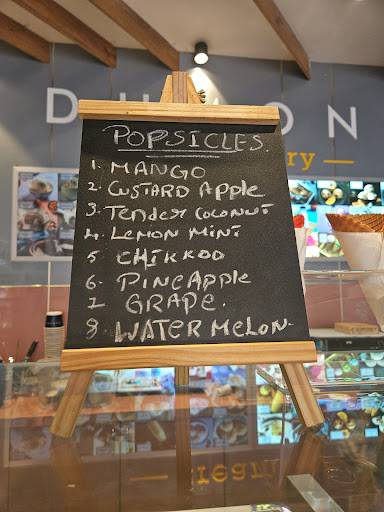 DU ON
POPSICLES.
ry
1. MANGO
2. CUSTARD Apple
3. Tender COCONUT
4. LEMON MINT
5 CHIKKOO
6. PINEApple
7 GRAPE.
8. WATER MELON.